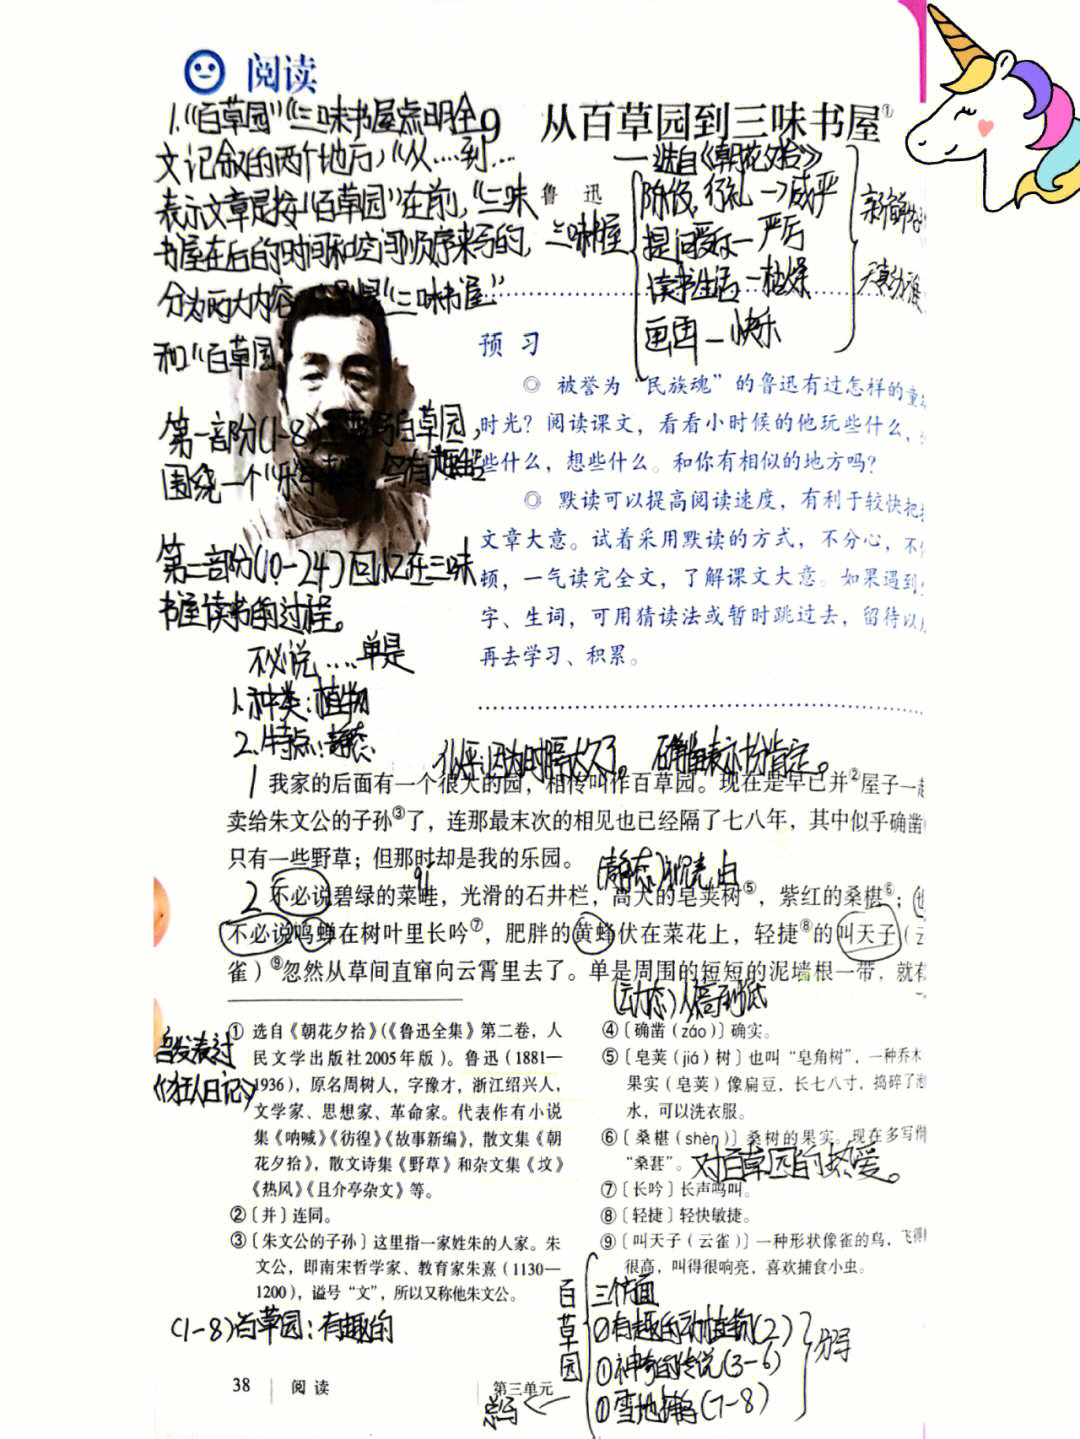 阅读
1."百草园""三味书屋点明全
文记叙的两个地方,"从……到…
表示文章是按"百草园"在前,"三味
书屋在后的时间和空间顺序来写的,
分为两大内容
"三味书屋"
和"百草园"
9 从百草园到三味书屋①
一选自《朝花夕拾》
鲁 迅
三味书屋
陈设,行礼→威严
严厉
读书生活—枯燥
画画—快乐
第一部分(1-8)
写百草园,
围绕一个"乐
第二部分(10-24)回忆在三味
书屋读书的过程。
不必说……单是
1.种类:植物
2.特点:静态
预 习
◎ 被誉为“民族魂”的鲁迅有过怎样的童
时光?阅读课文,看看小时候的他玩些什么,
些什么,想些什么。和你有相似的地方吗?
◎ 默读可以提高阅读速度,有利于较快把
文章大意。试着采用默读的方式,不分心,不
顿,一气读完全文,了解课文大意。如果遇到
字、生词,可用猜读法或暂时跳过去,留待以
再去学习、积累。
似乎:因为时隔太久了。 确凿表示十分肯定。
1 我家的后面有一个很大的园,相传叫作百草园。现在是早已并②屋子一起
卖给朱文公的子孙③了,连那最末次的相见也已经隔了七八年,其中似乎确凿
只有一些野草;但那时却是我的乐园。
(静态)
2 不必说碧绿的菜畦,光滑的石井栏,高大的皂荚树⑤,紫红的桑椹⑥;也
不必说鸣蝉在树叶里长吟⑦,肥胖的黄蜂伏在菜花上,轻捷⑧的叫天子(云
雀)⑨忽然从草间直窜向云霄里去了。单是周围的短短的泥墙根一带,就有
(动态)从高到低
① 选自《朝花夕拾》(《鲁迅全集》第二卷,人
民文学出版社2005年版)。鲁迅(1881—
1936),原名周树人,字豫才,浙江绍兴人,
文学家、思想家、革命家。代表作有小说
集《呐喊》《彷徨》《故事新编》,散文集《朝
花夕拾》,散文诗集《野草》和杂文集《坟》
《热风》《且介亭杂文》等。
②〔并〕连同。
③〔朱文公的子孙〕这里指一家姓朱的人家。朱
文公,即南宋哲学家、教育家朱熹(1130—
1200),谥号“文”,所以又称他朱文公。
发表过
《狂人日记》
④〔确凿(záo)〕确实。
⑤〔皂荚(jiá)树〕也叫“皂角树”,一种乔木
果实(皂荚)像扁豆,长七八寸,捣碎了泡
水,可以洗衣服。
⑥〔桑椹(shèn)〕桑树的果实。现在多写作
“桑葚”。
对百草园的热爱。
⑦〔长吟〕长声鸣叫。
⑧〔轻捷〕轻快敏捷。
⑨〔叫天子(云雀)〕一种形状像雀的鸟,飞得
很高,叫得很响亮,喜欢捕食小虫。
(1-8)百草园:有趣的
百草园
三个方面
①有趣的动植物(2)
①神奇的传说(3-6)
①雪地捕鸟(7-8)
分写
总写
38 阅 读
第三单元